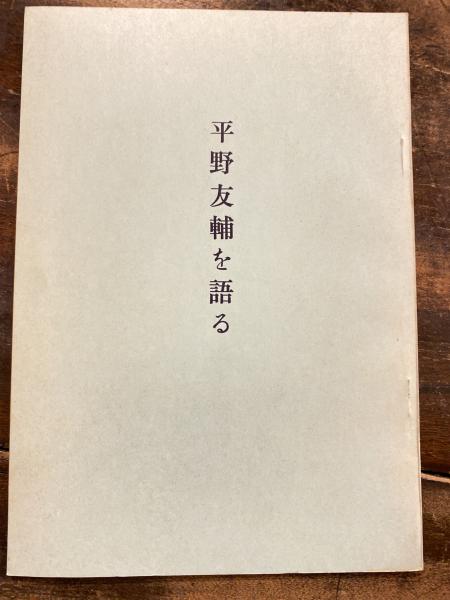 平野友輔を語る